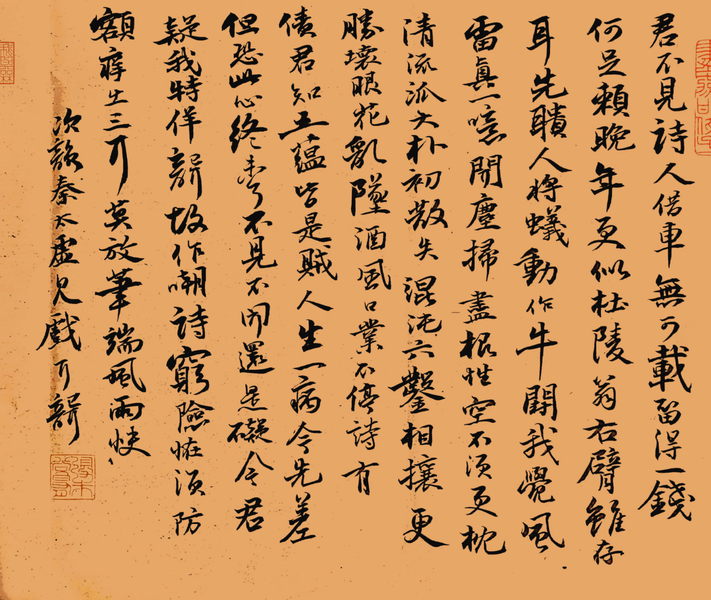 君不見詩人借車無可載留得一錢
何足賴晚年更似杜陵翁右臂雖存
耳先聵人將蟻動作牛鬭我覺風
雷真一噫聞塵掃盡根性空不須更枕
清流派大朴初散失混沌六鑿相攘更
勝壞眼花亂墜酒風口業不停詩有
債君知五蘊皆是賊人生一病今先差
但恐此心終未了不見不聞還是礙今君
疑我特佯聾故作嘲詩窮險怪須防
額癢出三耳莫放筆端風雨快
次韻秦太虛見戲耳聾